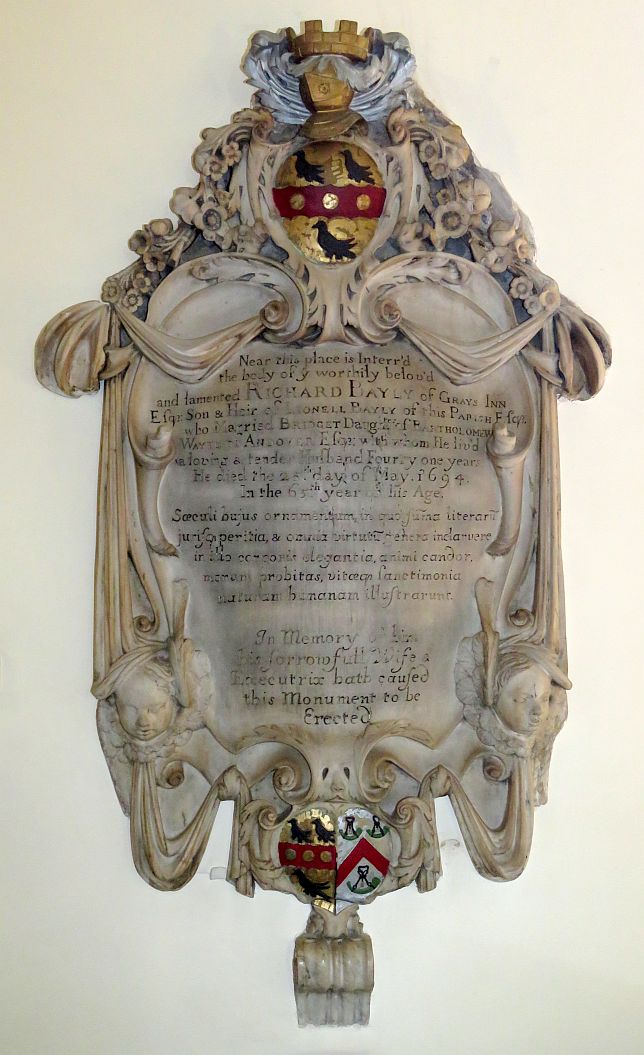 Near this place is Interr'd
the body of yᵉ worthily belov'd
and lamented RICHARD BAYLY of GRAYS INN
Esqr. Son & Heir of LIONELL BAYLY of this PARISH Esqr.
who Married BRIDGET Daughtr. of BARTHOLOMEW
of ANDOVER Esqr. with whom He liv'd
a loving & tender Husband Fourty one years
He died the day of May. 1694.
In the 65th year of his Age.
Sæculi hujus ornamentum, in quo suma literarū
jurisq; peritia, & omnia virtutū genera inclaruere
in illo corporis elegantia, animi candor,
morum probitas, vitæq; sanctimonia
naturam humanam illustrarunt.
In Memory of him
his sorrowfull Wife &
Executrix hath caused
this Monument to be
Erected